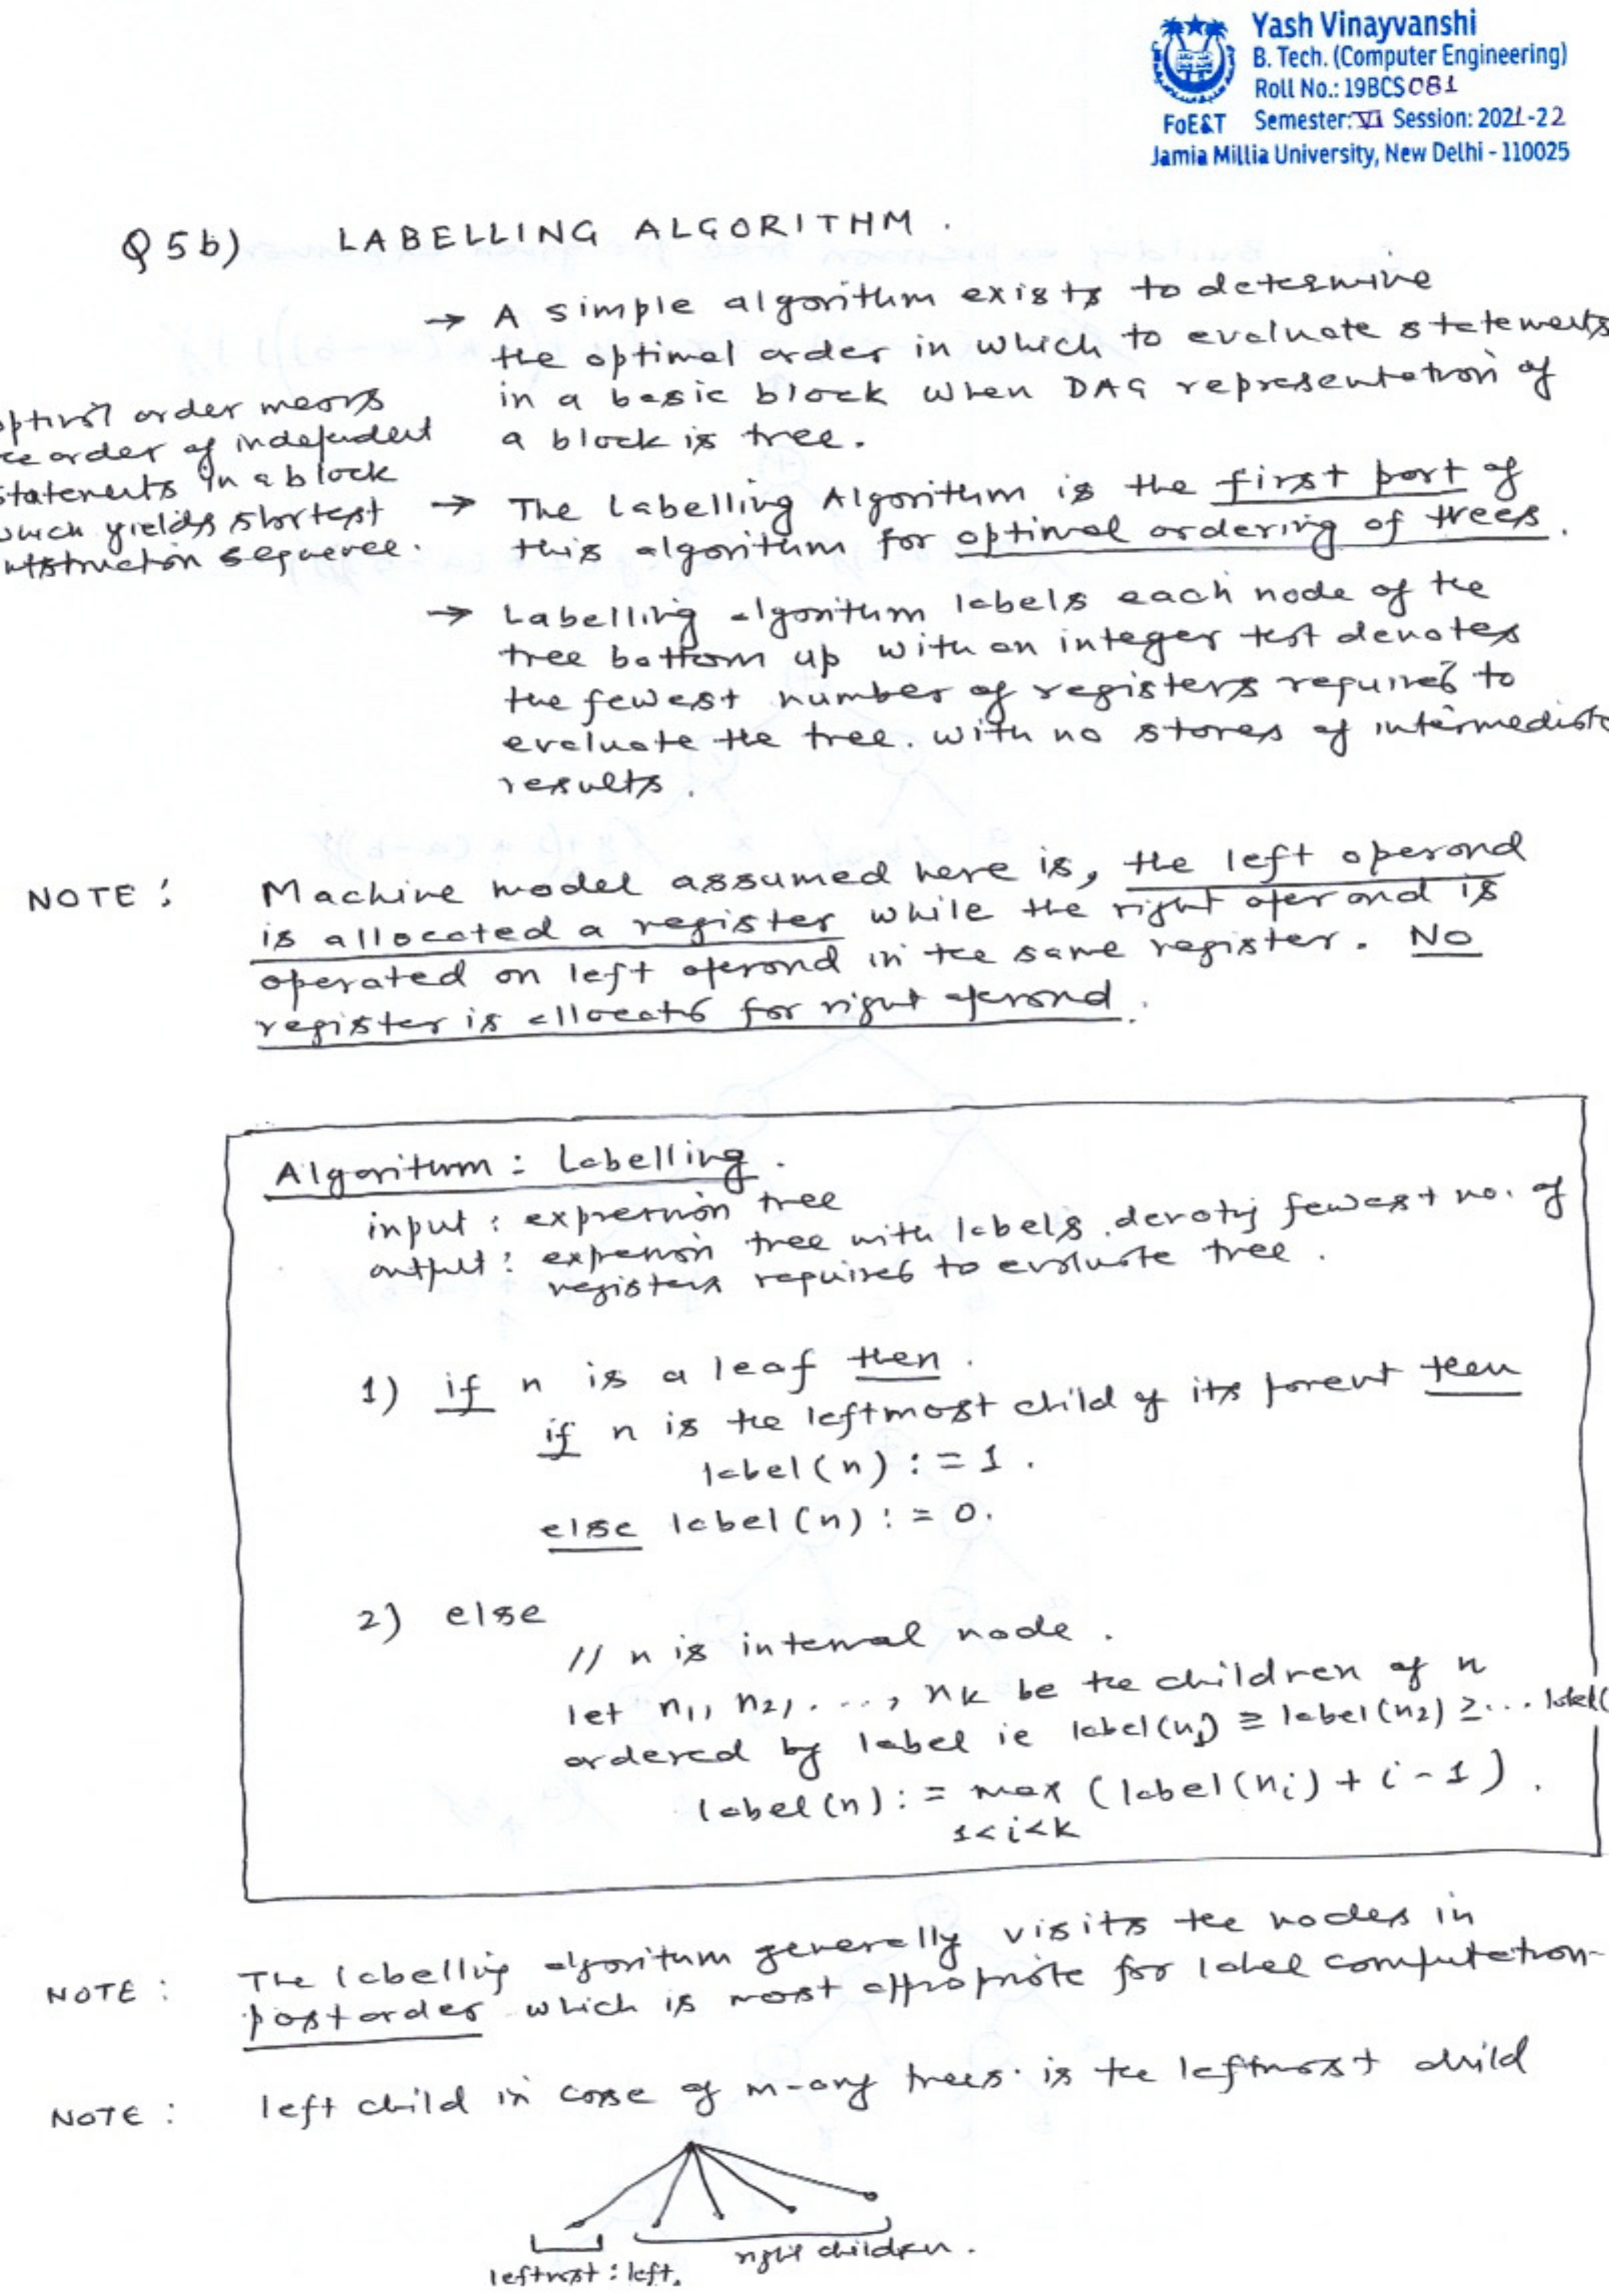 Yash Vinayvanshi
B. Tech. (Computer Engineering)
Roll No.: 19BCS081
FoE&T Semester: VI Session: 2021-22
Jamia Millia University, New Delhi - 110025
Q5b) LABELLING ALGORITHM.
→ A simple algorithm exists to determine
the optimal order in which to evaluate statements
in a basic block when DAG representation of
a block is tree.
order means
order of independent
statements in a block
which yields shortest
sequence.
→ The Labelling Algorithm is the first part of
this algorithm for optimal ordering of trees.
→ Labelling algorithm labels each node of the
tree bottom up with an integer that denotes
the fewest number of registers required to
evaluate the tree. with no stores of intermediate
results.
NOTE: Machine model assumed here is, the left operand
is allocated a register while the right operand is
operated on left operand in the same register. No
register is allocated for right operand.
Algorithm: Labelling.
input: expression tree
output: expression tree with labels denoting fewest no. of
registers required to evaluate tree.
1) if n is a leaf then.
if n is the leftmost child of its parent then
label(n) := 1.
else label(n) := 0.
2) else
// n is internal node.
let n1, n2, ..., nk be the children of n
ordered by label ie label(n1) ≥ label(n2) ≥ ... label(
label(n) := max (label(ni) + i - 1).
1<i<k
NOTE: The labelling algorithm generally visits the nodes in
postorder which is most appropriate for label computation-
NOTE: left child in case of m-ary trees. is the leftmost child
leftmost: left. right children.